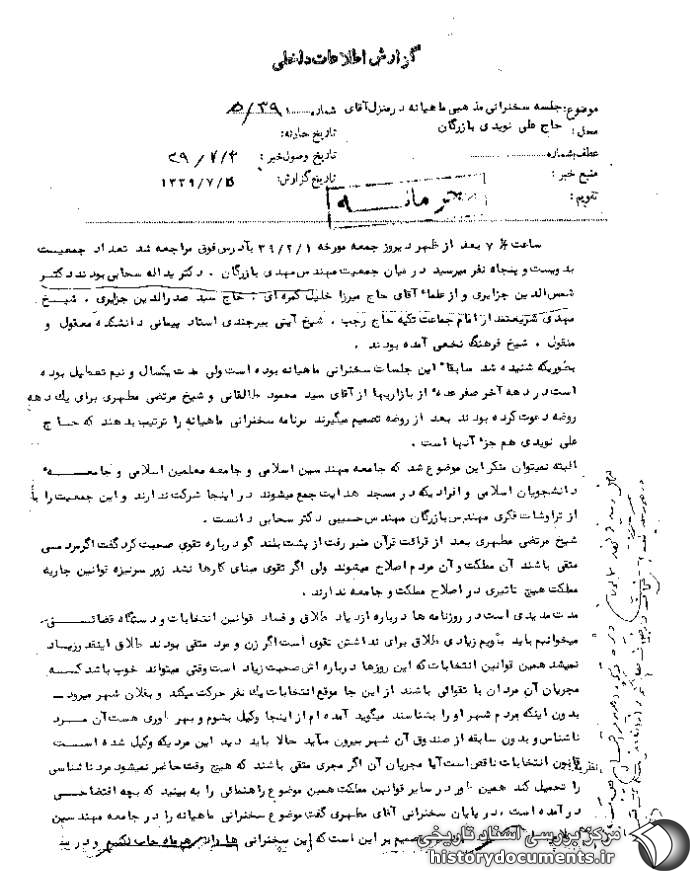 گزارش اطلاعات داخلی
موضوع: جلسه سخنرانی مذهبی ماهیانه در منزل آقای شماره ۳۹۱/۵
محل: حاج علی نویدی بازرگان تاریخ حادثه:
عطف بشماره تاریخ وصول خبر: ۳۹/۷/۳
منبع خبر: تاریخ گزارش: ۱۳۳۹/۷/۵
تقویم:
محرمانه
ساعت ۷ بعد از ظهر دیروز جمعه مورخه ۳۹/۷/۱ بآدرس فوق مراجعه شد تعداد جمعیت
بدویست و پنجاه نفر میرسید در میان جمعیت مهندس مهدی بازرگان . دکتر یداله سحابی بودند دکتر
شمس الدین جزایری و از علماء آقای حاج میرزا خلیل کمره ای : حاج سید صدرالدین جزایری . شیخ
مهدی شریعتمدار امام جماعت تکیه حاج رجب . شیخ آیتی بیرجندی استاد پیمانی دانشکده معقول و
منقول . شیخ فرهنگ نخعی آمده بودند .
بطوریکه شنیده شد سابقا" این جلسات سخنرانی ماهیانه بوده است ولی مدت یکسال و نیم تعطیل بوده
است در دهه آخر صفر عده‌ء از بازاریها از آقای سید محمود طالقانی و شیخ مرتضی مطهری برای یك دهه
روضه دعوت کرده بودند بعد از روضه تصمیم میگیرند برنامه سخنرانی ماهیانه را ترتیب بدهند که حاج
علی نویدی هم جزء آنها است .
البته نمیتوان منکر این موضوع شد که جامعه مهندسین اسلامی و جامعه معلمین اسلامی و جامعه
دانشجویان اسلامی و افرادیکه در مسجد هدایت جمع میشوند در اینجا شرکت ندارند و این جمعیت را باید
از تراوشات فکری مهندس بازرگان مهندس حسیبی دکتر سحابی دانست .
شیخ مرتضی مطهری بعد از قرائت قرآن منبر رفت از پشت بلند گو درباره تقوی صحبت کرد گفت اگر مردمی
متقی باشند آن مملکت و آن مردم اصلاح میشوند ولی اگر تقوی مبنای کارها نشد زور سرنیزه قوانین جاریه
مملکت هیچ تاثیری در اصلاح مملکت و جامعه ندارند .
مدت مدیدی است در روزنامه ها درباره ازدیاد طلاق و فساد قوانین انتخابات و دستگاه قضائی
میخوانیم باید بگویم زیادی طلاق برای نداشتن تقوی است اگر زن و مرد متقی بودند طلاق اینقدر زیاد
نمیشد همین قوانین انتخابات که این روزها درباره اش صحبت زیاد است وقتی میتواند خوب باشد که
مجریان آن مردان با تقوائی باشند از این جا موقع انتخابات یك نفر حرکت میکند و بفلان شهر میرود
بدون اینکه مردم شهر او را بشناسند میگوید آمده ام از اینجا وکیل بشوم و بهر طوری هست آن مرد
ناشناس و بدون سابقه از صندوق آن شهر بیرون میآید حالا باید دید این مردیکه وکیل شده است
قانون انتخابات ناقص است آیا مجریان آن اگر مجری متقی باشند که هیچ وقت حاضر نمیشود مرد ناشناسی
را تحمیل کند همین طور در سایر قوانین مملکت همین موضوع راهنمائی را به ببینید که بچه افتضاحی
درآمده است . در پایان سخنرانی آقای مطهری گفت موضوع سخنرانی ماهیانه را در جامعه مهندسین
تصمیم بر این است که این سخنرانی ها را در هر ماه چاپ بکنیم و در بین
نظریه:
مرکز بررسی اسناد تاریخی
historydocuments.ir